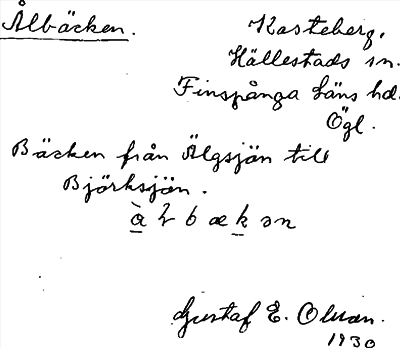 Ålbäcken.
Kasteberg,
Hällestads sn.
Finspånga läns hd.
Ögl.
Bäcken från Älgsjön till
Björksjön.
Gustaf E. Olson.
1930